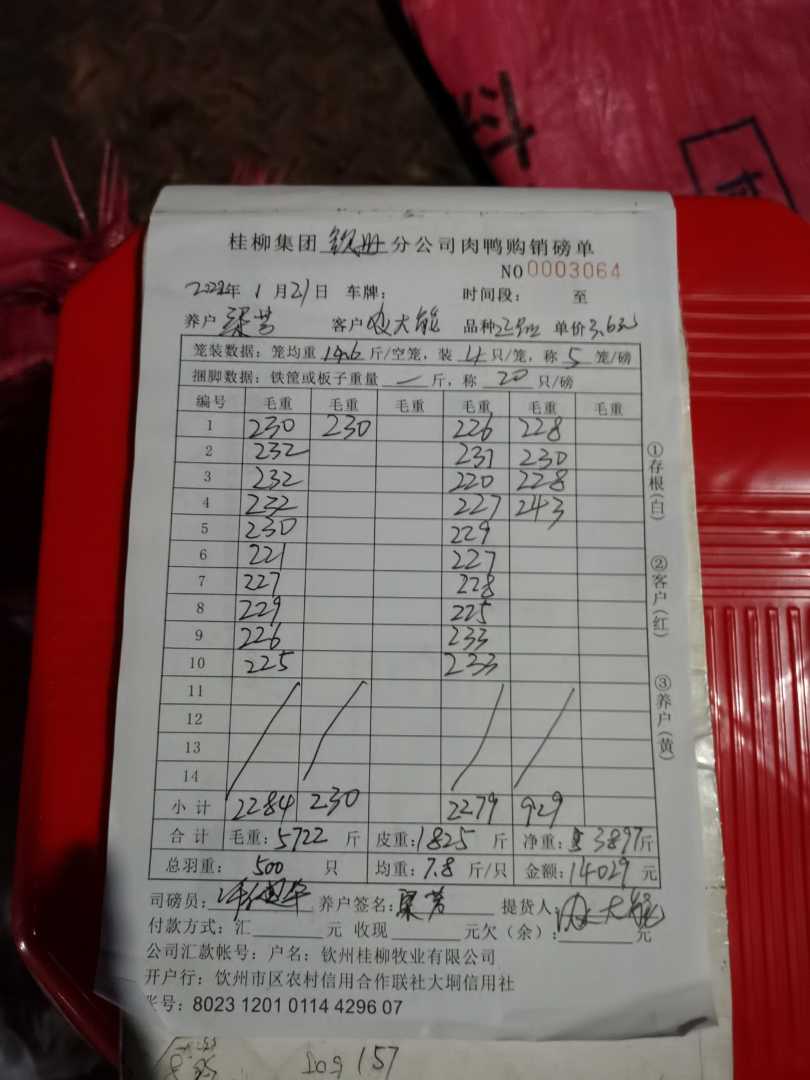 桂柳集团 钦州 分公司肉鸭购销磅单
NO 0003064
2022年 1 月 21 日 车牌: 时间段: 至
养户 梁芳 客户 大能 品种 单价 3.6元
笼装数据: 笼均重 14.6 斤/空笼, 装 4 只/笼, 称 5 笼/磅
捆脚数据: 铁筐或板子重量 一 斤, 称 20 只/磅
编号 毛重 毛重 毛重 毛重 毛重 毛重
1 230 230 226 228
2 232 231 230
3 232 220 228
4 232 227 243
5 230 229
6 221 227
7 227 228
8 229 225
9 226 233
10 225 233
11
12
13
14
小计 2284 230 2279 929
合计 毛重: 5722 斤 皮重: 1825 斤 净重: 3897 斤
总羽重: 500 只 均重: 7.8 斤/只 金额: 14029 元
司磅员: 养户签名: 梁芳 提货人: 大能
付款方式: 汇 元 收现 元欠(余): 元
公司汇款帐号: 户名: 钦州桂柳牧业有限公司
开户行: 钦州市区农村信用合作联社大垌信用社
账号: 8023 1201 0114 4296 07
①存根(白)
②客户(红)
③养户(黄)
157
料